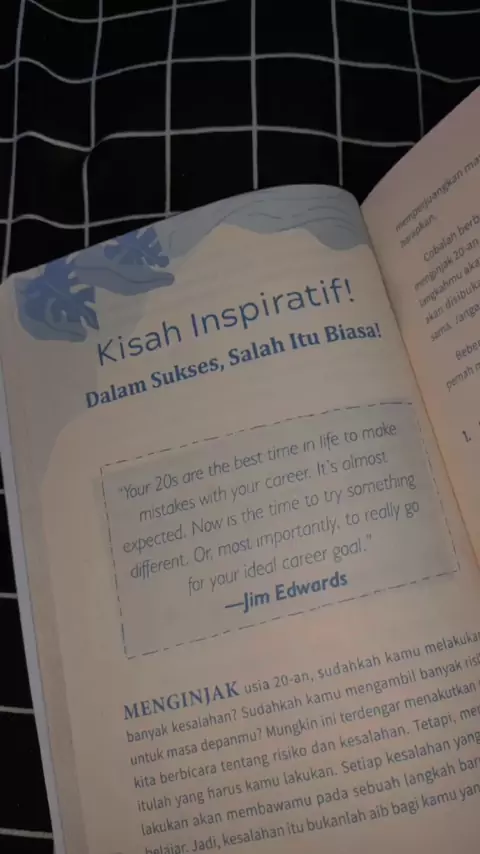 Kisah Inspiratif!
Dalam Sukses, Salah Itu Biasa!
"Your 20s are the best time in life to make
mistakes with your career. It's almost
expected. Now is the time to try something
different. Or, most importantly, to really go
for your ideal career goal."
—Jim Edwards
MENGINJAK usia 20-an, sudahkah kamu melakukan
banyak kesalahan? Sudahkah kamu mengambil banyak
untuk masa depanmu? Mungkin ini terdengar menakutkan
kita berbicara tentang risiko dan kesalahan. Tetapi,
itulah yang harus kamu lakukan. Setiap kesalahan yang
lakukan akan membawamu pada sebuah langkah
belajar. Jadi, kesalahan itu bukanlah aib bagi kamu
memperjuangkan
harapkan.
Cobalah
menginjak 20-an
langkahmu
akan
sama.
pernah
1.